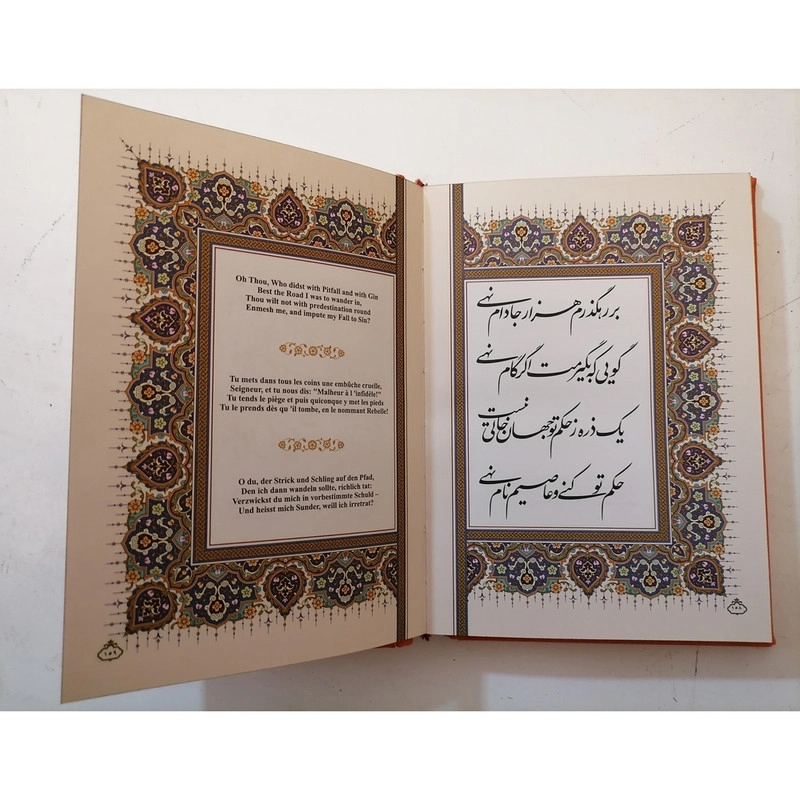 Oh Thou, Who didst with Pitfall and with Gin
Best the Road I was to wander in,
Thou wilt not with predestination round
Enmesh me, and impute my Fall to Sin?
Tu mets dans tous les coins une embûche cruelle,
Seigneur, et tu nous dis: "Malheur à l 'infidèle!"
Tu tends le piège et puis quiconque y met les pieds
Tu le prends dès qu 'il tombe, en le nommant Rebelle!
O du, der Strick und Schling auf den Pfad,
Den ich dann wandeln sollte, richlich tat:
Verzwickst du mich in vorbestimmte Schuld –
Und heisst mich Sunder, weill ich irretrat?
۱۵۹
بر رهگذرم هزار جا دام نهی
گویی که بگیرمت اگر گام نهی
یک ذره ز حکم تو جهان خالی نیست
حکم تو کنی و عاصیم نام نهی
۱۵۸